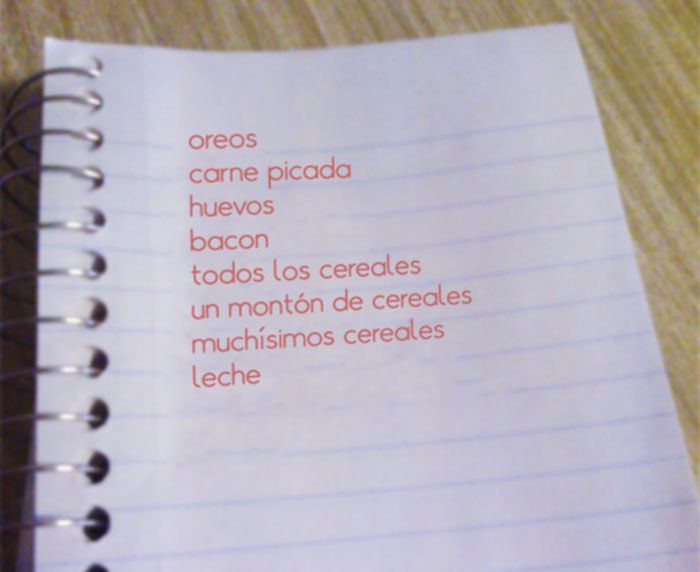 oreos
carne picada
huevos
bacon
todos los cereales
un montón de cereales
muchísimos cereales
leche